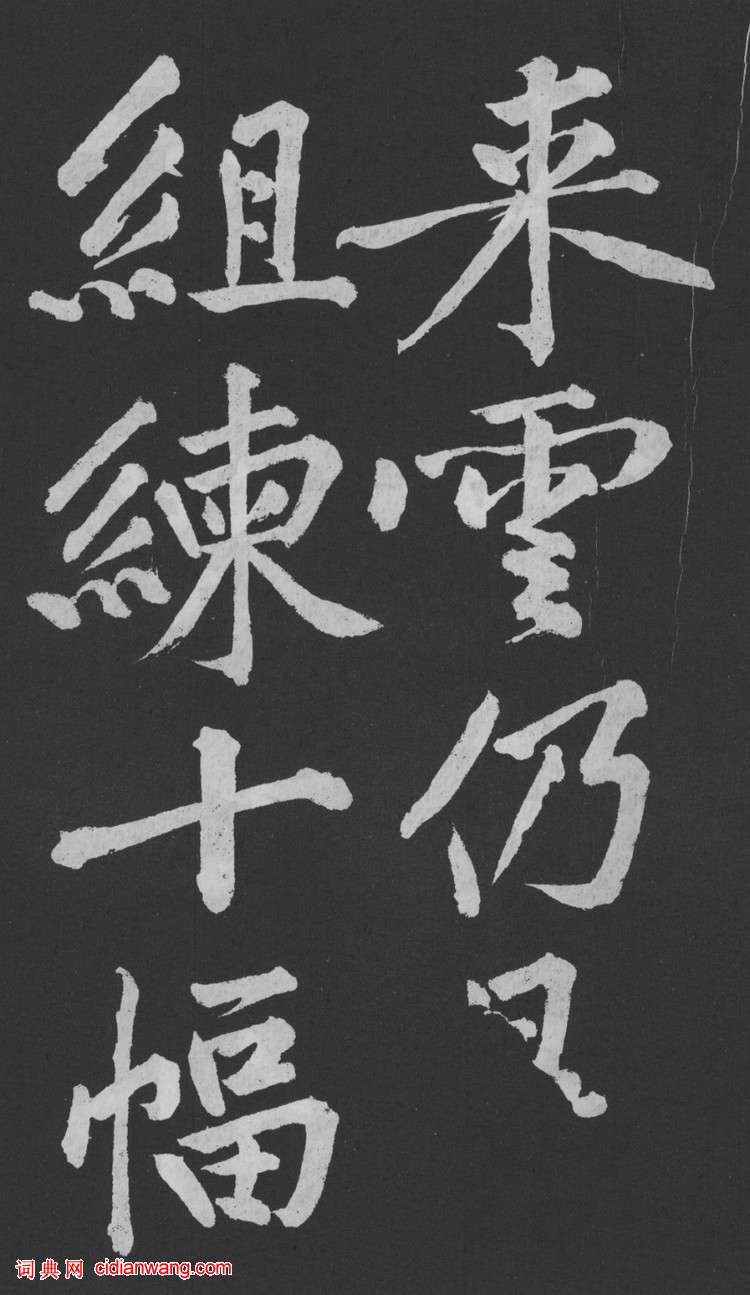 来雲仍
組練十幅
词典网 cidianwang.com